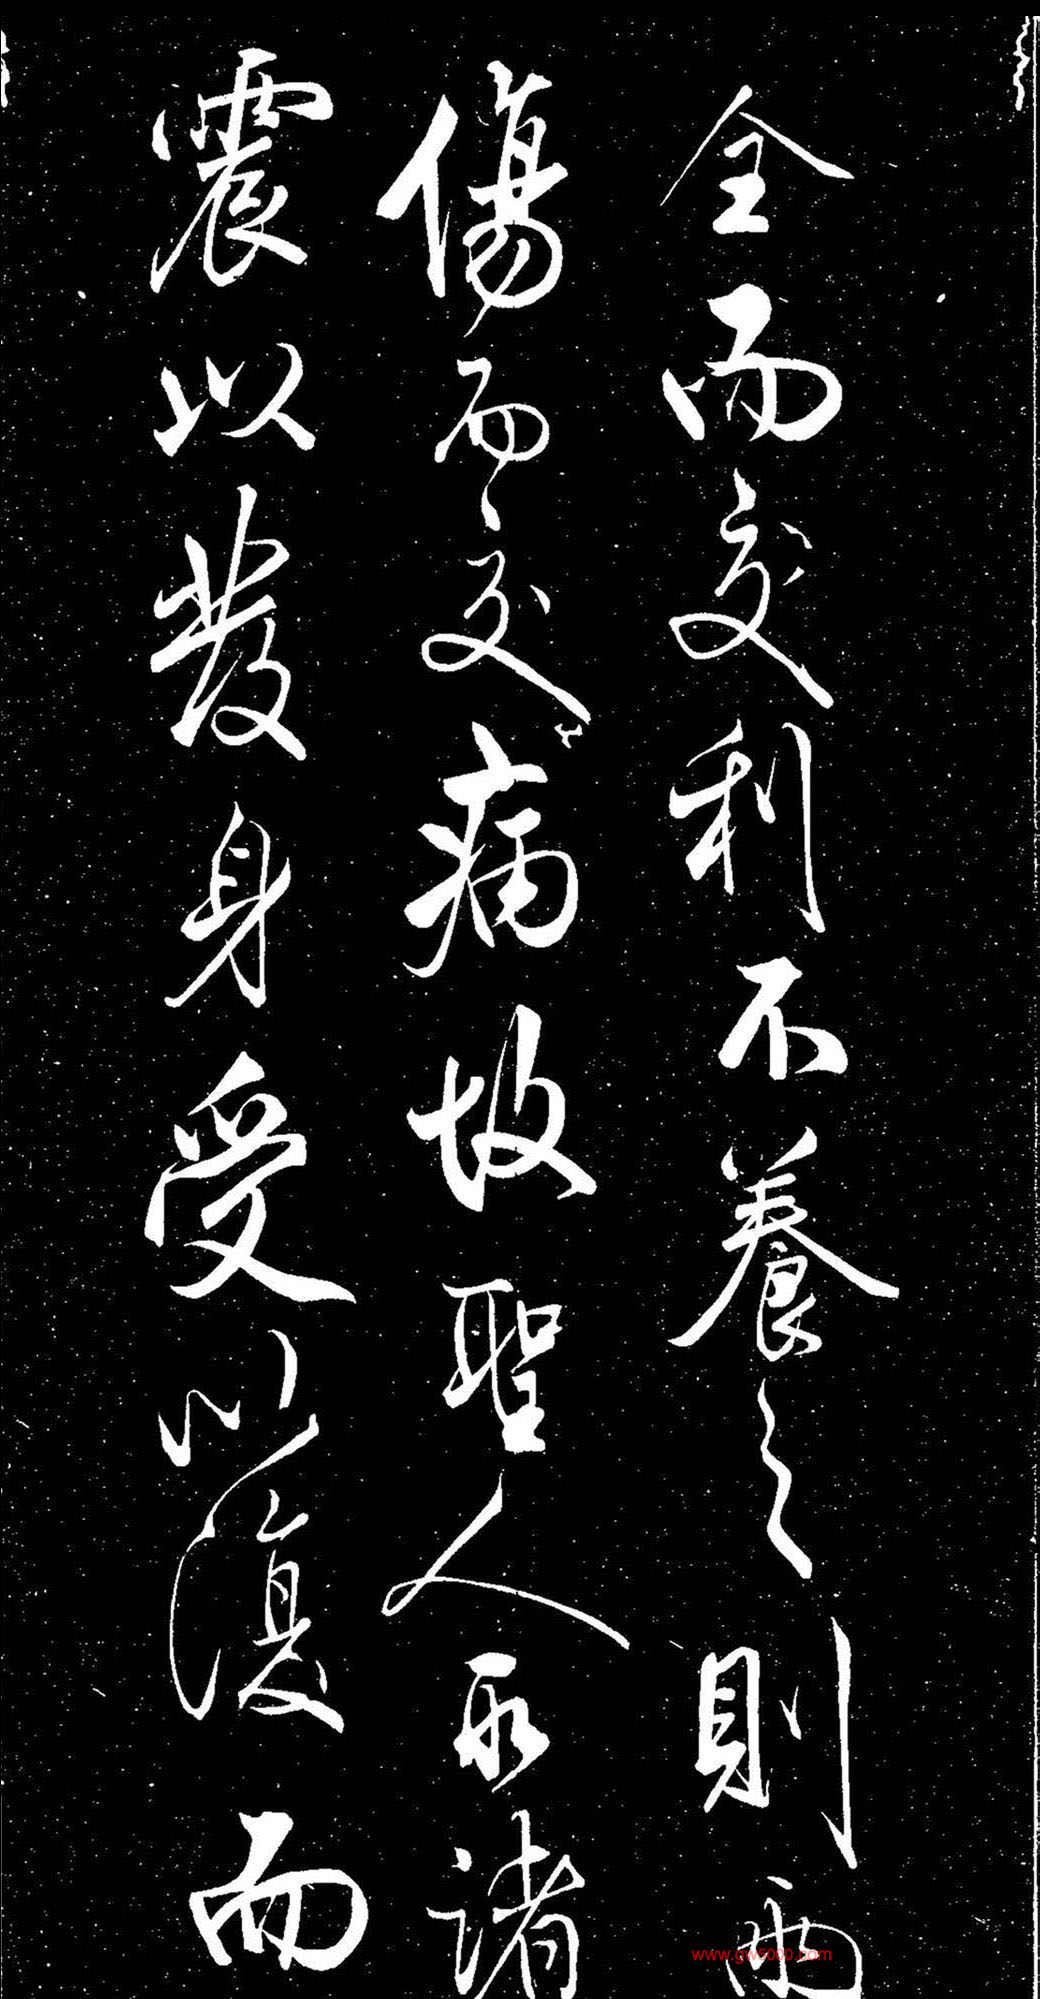 全而交利不養之則兩
傷而交病故聖人取諸
震以發身受以復而
www.gw5000.com